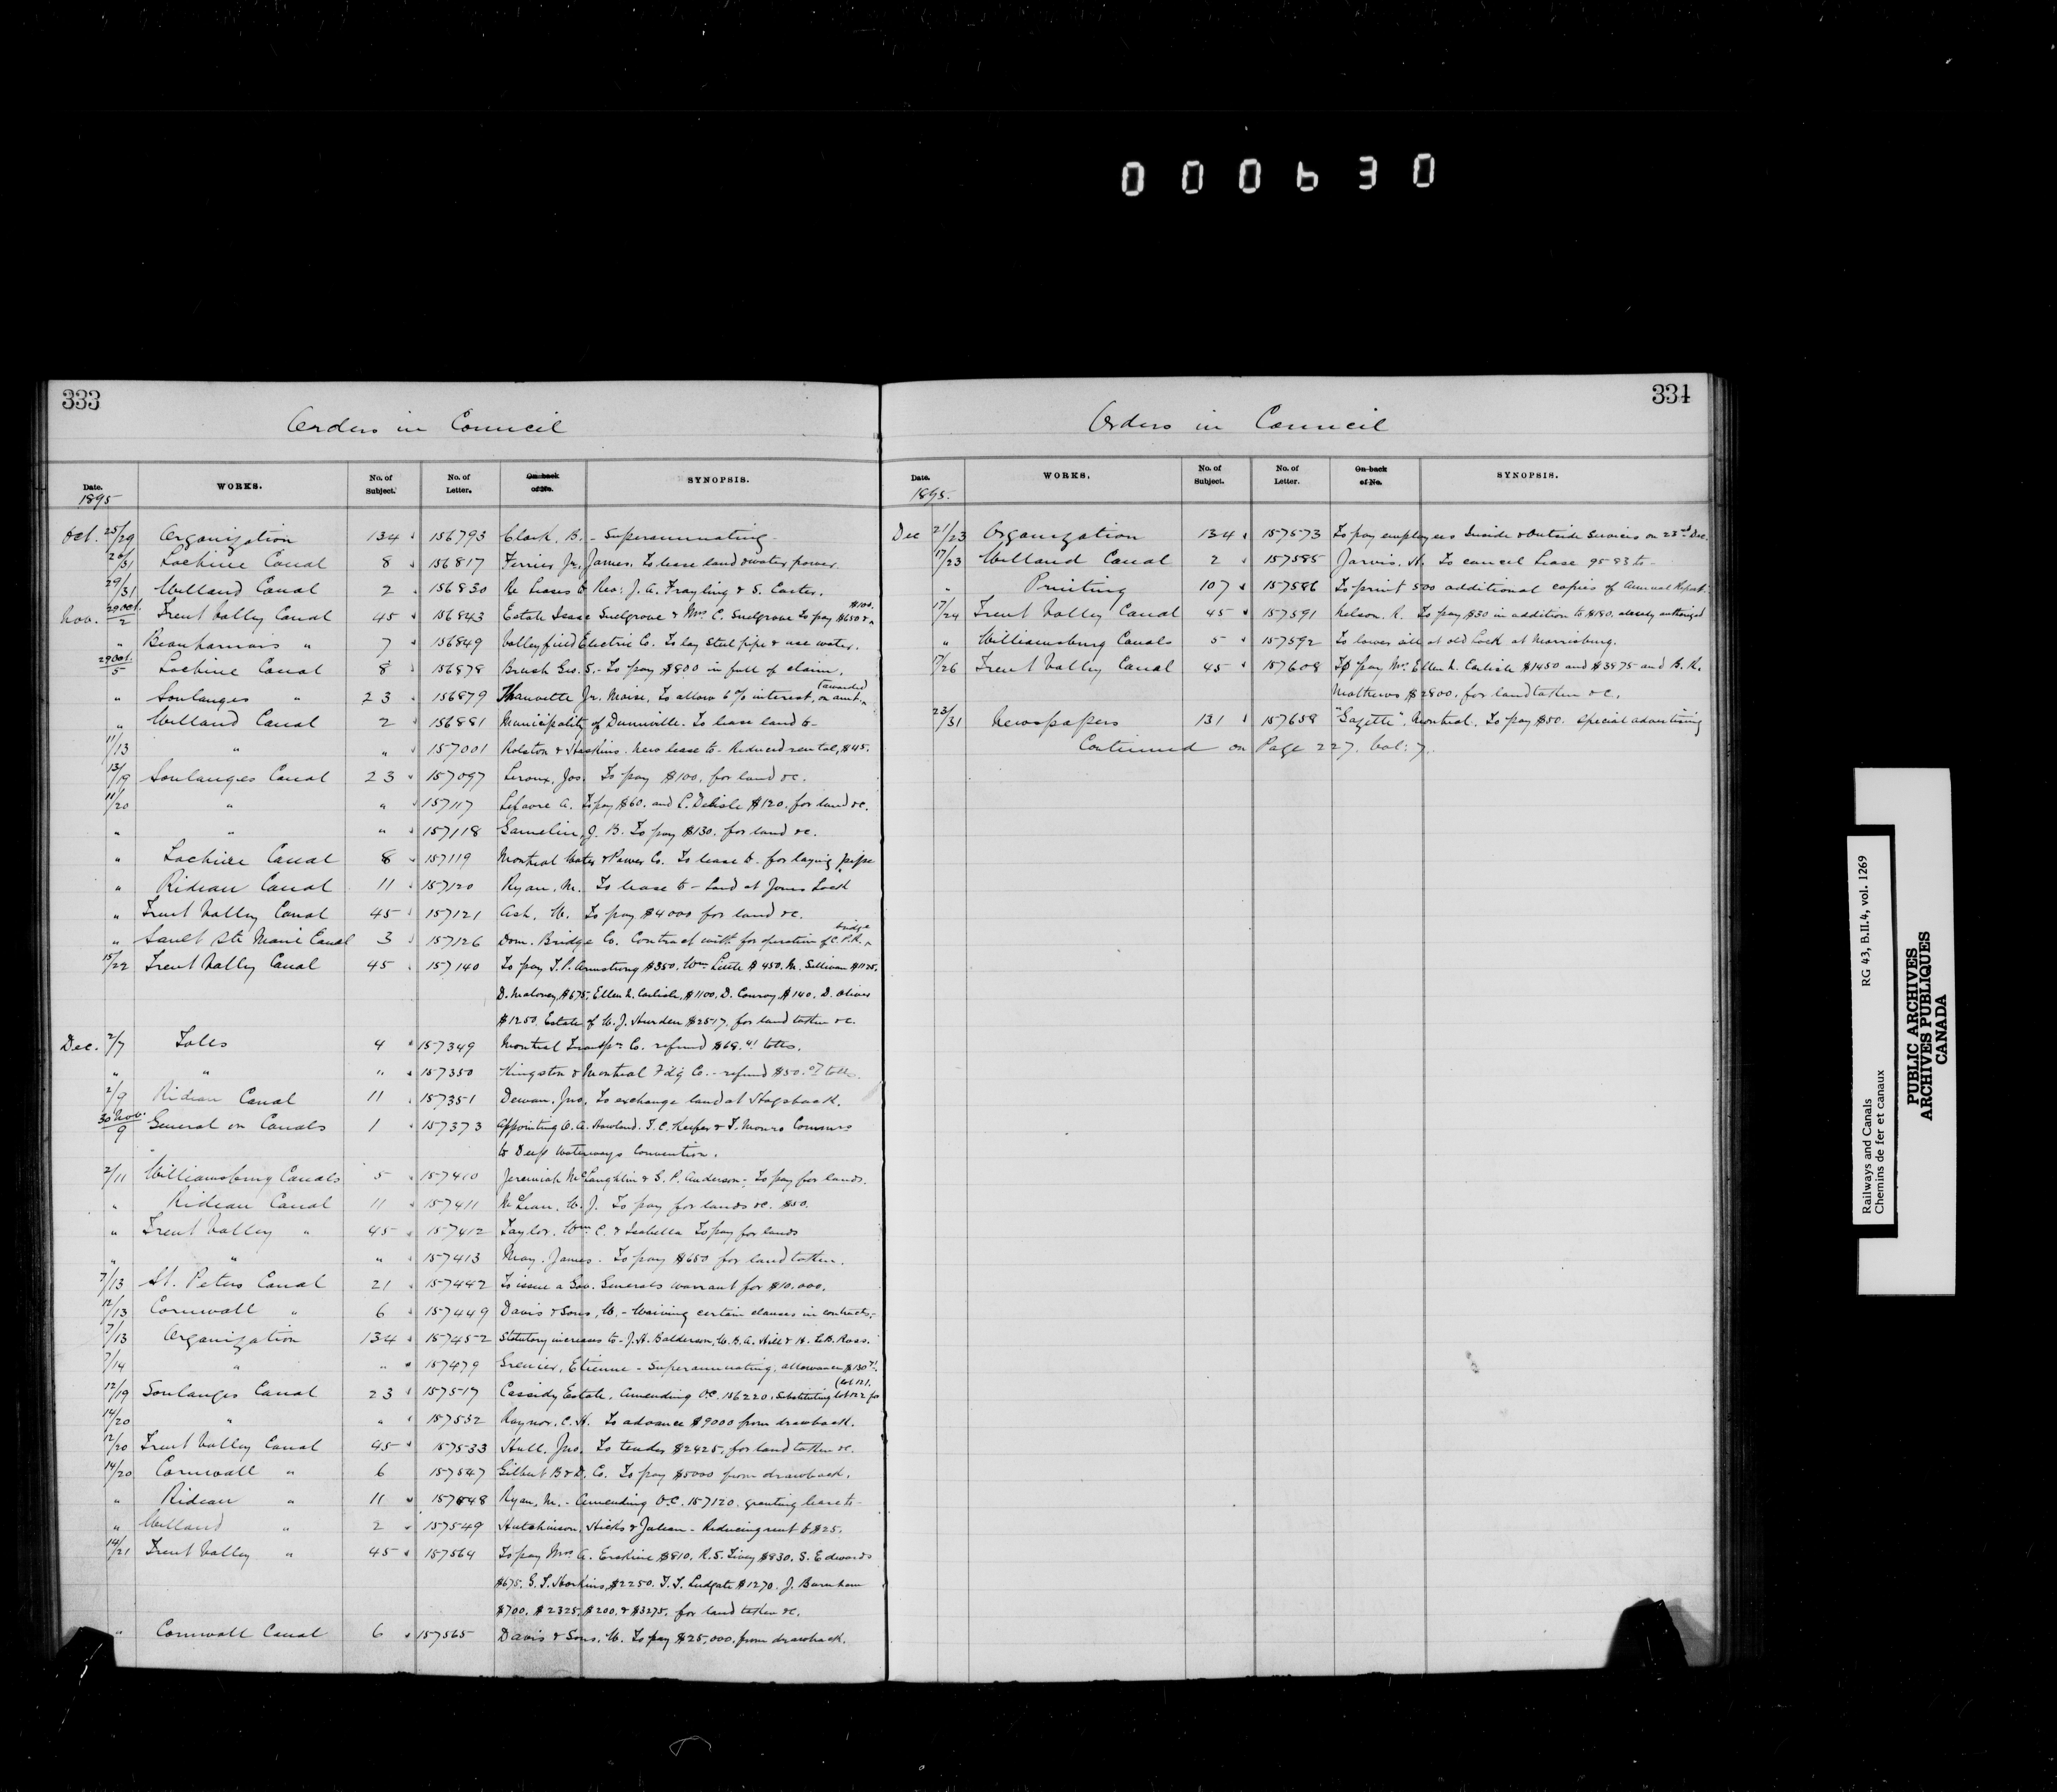 000630
333
Orders in Council
Date. WORKS. No. of Subject. No. of Letter. On back of No. SYNOPSIS.
1895
Oct. 25/29 Organization 134 156793 Clark, B. - Superannuating -
26/31 Lachine Canal 8 156817 Ferrier Jr, James. To lease land & water power.
29/31 Welland Canal 2 156830 Re Leases to Rev: J. A. Frayling & S. Carter.
Nov. 29 Oct./2 Trent Valley Canal 45 156843 Estate Isaac Snelgrove & Mrs C. Snelgrove To pay $650 & $100.
" Beauharnois " 7 156849 Valleyfield Electric Co. To lay steel pipe & use water.
29 Oct./5 Lachine Canal 8 156878 Brush Geo. S. - To pay $800 in full of claim.
" Soulanges " 23 156879 Thauvette Jr. Moise. To allow 6% interest, on amt. awarded
" Welland Canal 2 156881 Municipality of Dunnville. To lease land to -
11/13 " " 157001 Rolston & Haskins. New lease to - Reduced rental, $45.
13/19 Soulanges Canal 23 157097 Leroux, Jos. To pay $100. for land &c.
11/20 " " 157117 Lefavre A. To pay $60. and C. Delisle $120. for land &c.
" " " 157118 Gamelin, J. B. To pay $130. for land &c.
" Lachine Canal 8 157119 Montreal Water & Power Co. To lease to - for laying pipe
" Rideau Canal 11 157120 Ryan, M. To lease to - Land at Jones Lock
" Trent Valley Canal 45 157121 Ash, W. To pay $4000 for land &c.
" Sault Ste Marie Canal 3 157126 Dom. Bridge Co. Contract with for operation of C.P.R. bridge
15/22 Trent Valley Canal 45 157140 To pay T. P. Armstrong $350. Wm Little $450. M. Sullivan $1125.
D. Maloney, $675. Ellen L. Carlisle, $1100. D. Conroy $140. D. Oliver
$1250. Estate of W. J. Hurden $2517. for land taken &c.
Dec. 2/7 Tolls 4 157349 Montreal Transpn Co. refund $68.41 tolls.
" " " 157350 Kingston & Montreal Fdg Co. - refund $50.07 tolls.
2/9 Rideau Canal 11 157351 Dewan, Jno. To exchange land at Hogsback.
30 Nov./9 General on Canals 1 157373 Appointing O. A. Howland. T. C. Keefer & T. Monro Commrs
to Deep Waterways Convention.
2/11 Williamsburg Canals 5 157410 Jeremiah McLaughlin & S. P. Anderson - To pay for lands.
" Rideau Canal 11 157411 McLean, W. J. To pay for lands &c. $50.
" Trent Valley " 45 157412 Taylor, Wm C. & Isabella To pay for lands
" " " 157413 May, James - To pay $650 for land taken.
7/13 St. Peters Canal 21 157442 To issue a Gov. Generals warrant for $10,000.
12/13 Cornwall " 6 157449 Davis & Sons, W. - Waiving certain clauses in contracts -
7/13 Organization 134 157452 Statutory increases to - J. H. Balderson, W. B. A. Hill & H. LeB. Ross.
7/14 " " 157479 Grenier, Etienne - Superannuating, allowance $130.71
12/19 Soulanges Canal 23 157517 Cassidy Estate, Amending O.C. 156220, Substituting lot 122 for (lot 121.
14/20 " " 157532 Raynor, C. H. To advance $9000 from drawback.
12/20 Trent Valley Canal 45 157533 Hull, Jno. To tender $2425, for land taken &c.
14/20 Cornwall " 6 157547 Gilbert B & D. Co. To pay $5000 from drawback.
" Rideau " 11 157548 Ryan, M. - Amending O.C. 157120. granting lease to -
" Welland " 2 157549 Hutchinson, Hicks & Julian - Reducing rent to $25.
14/21 Trent Valley " 45 157564 To pay Mrs A. Erskine $810. R. S. Tivey $830. S. Edwards
$675. G. T. Hoskins, $2250. T. T. Ludgate $1270. J. Burnham
$700. $2325. $200. & $3275. for land taken &c.
" Cornwall Canal 6 157565 Davis & Sons, W. To pay $25,000. from drawback.
334
Orders in Council
Date. WORKS. No. of Subject. No. of Letter. On back of No. SYNOPSIS.
1895.
Dec 21/23 Organization 134 157573 To pay employees Inside & Outside Services on 23rd Dec.
17/23 Welland Canal 2 157585 Jarvis, H. To cancel Lease 9583 to -
" Printing 107 157586 To print 500 additional copies of Annual Report.
17/24 Trent Valley Canal 45 157591 Nelson, R. To pay $30 in addition to $180. already authorized
" Williamsburg Canals 5 157592 To lower sill at old Lock at Morrisburg.
17/26 Trent Valley Canal 45 157608 To pay Mrs Ellen L. Carlisle $1450 and $3875 and B. R.
Mathews $2800. for land taken &c.
23/31 Newspapers 131 157658 "Gazette". Montreal. To pay $50. special advertising
Continued on Page 227. Vol: 7.
Railways and Canals
Chemins de fer et canaux
RG 43, B.II.4, vol. 1269
PUBLIC ARCHIVES
ARCHIVES PUBLIQUES
CANADA